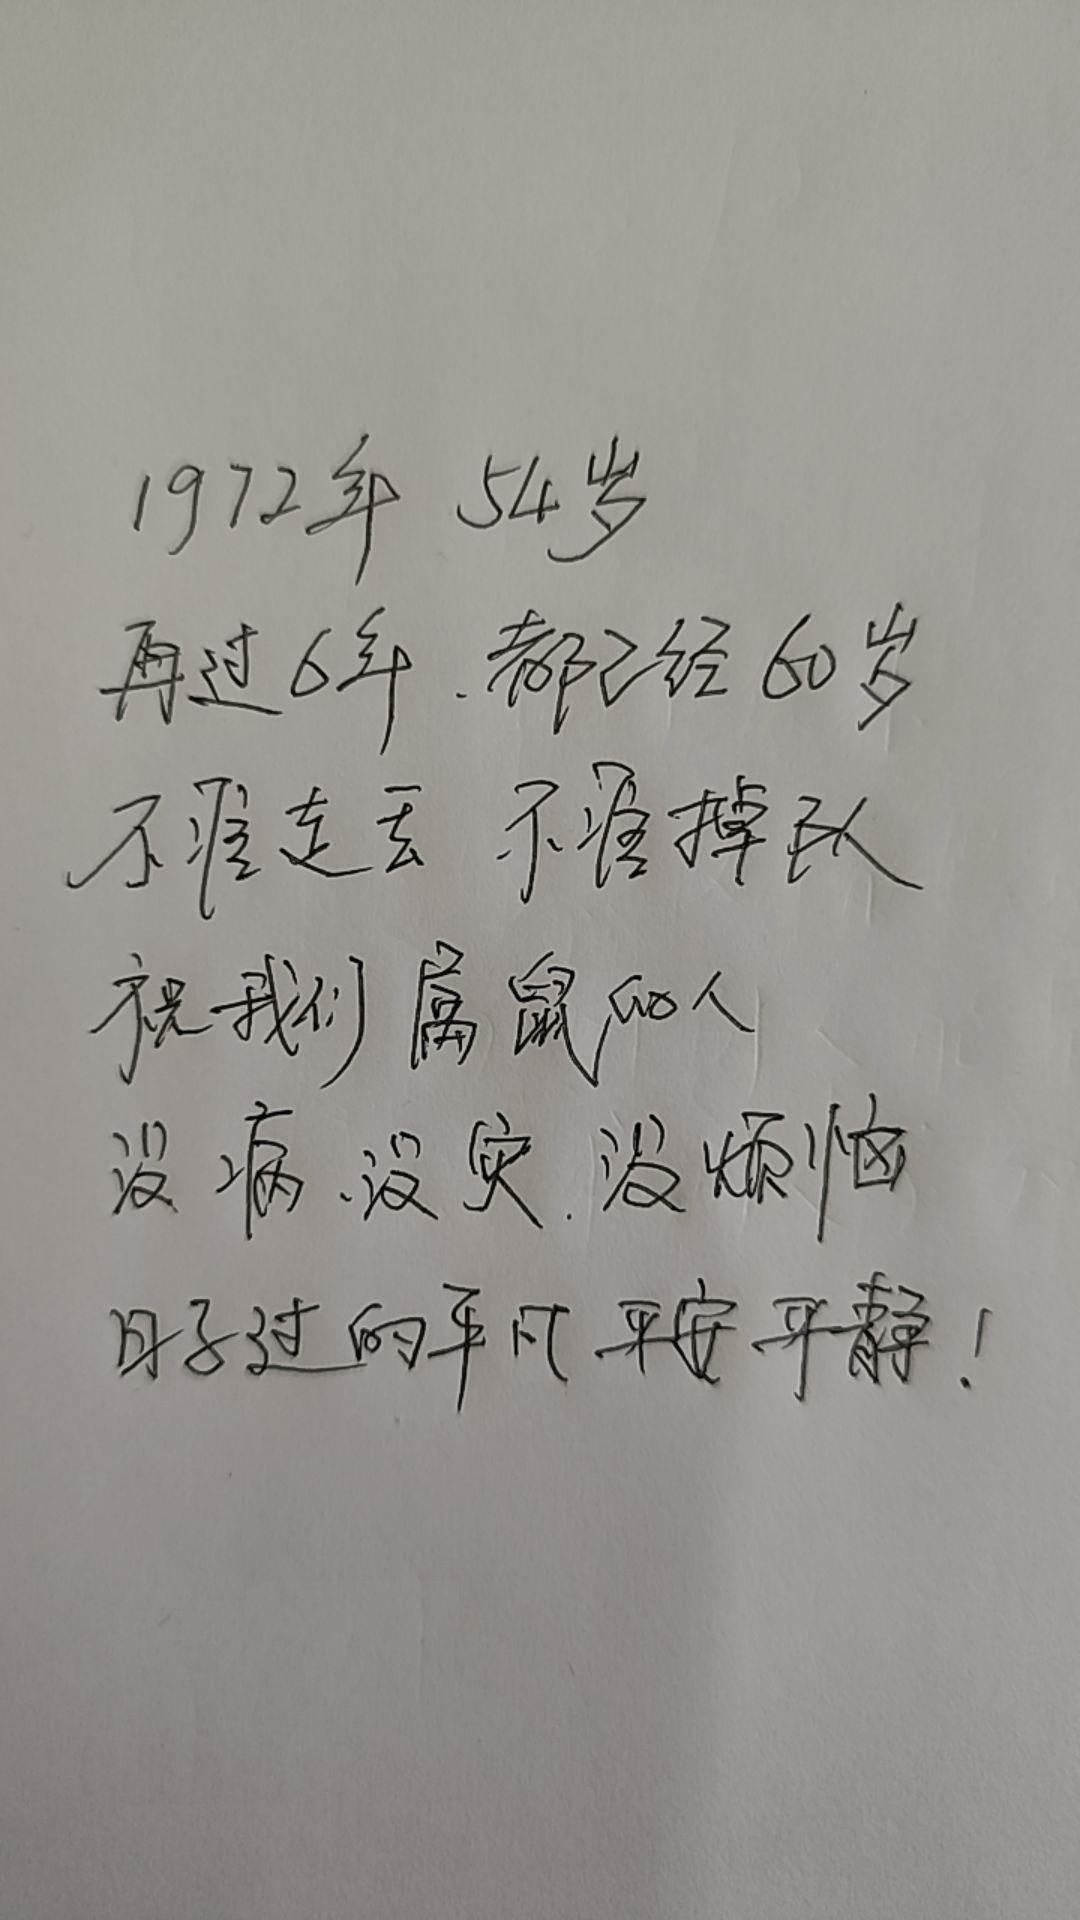 1972年 54岁
再过6年.都已经60岁
不准走丢 不准掉队
祝我们属鼠的人
没病.没灾.没烦恼
日子过的平凡平安平静!